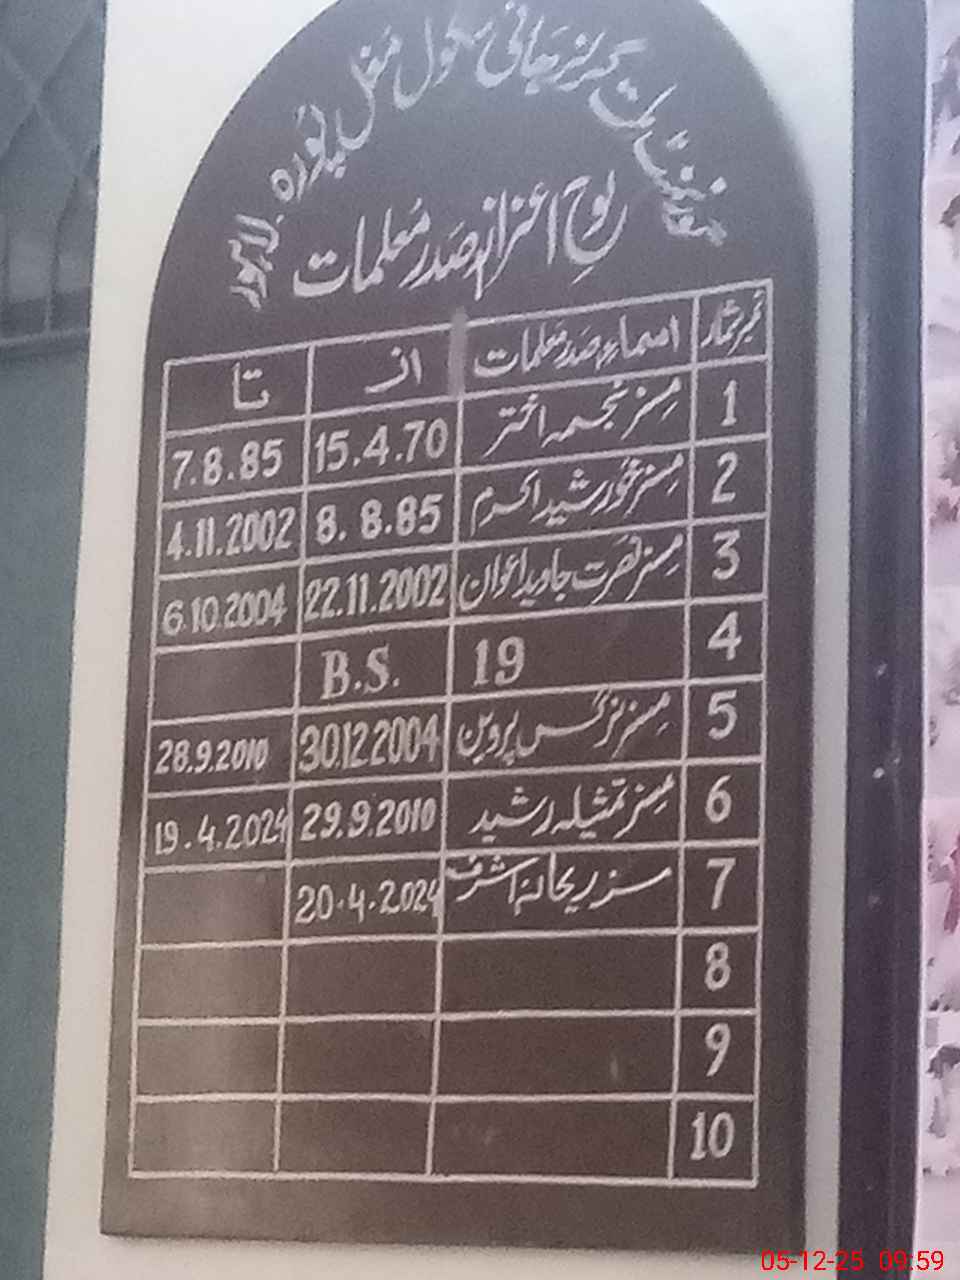 گورنمنٹ گرلز ہائی سکول مغل پورہ لاہور
لوحِ اعزاز صدر معلمات
نمبر شمار اسماء صدر معلمات از تا
1 مسز نجمہ اختر 15.4.70 7.8.85
2 مسز خورشید اکرم 8.8.85 4.11.2002
3 مسز نصرت جاوید اعوان 22.11.2002 6.10.2004
4 19 B.S.
5 مسز نرگس پروین 30.12.2004 28.9.2010
6 مسز تمثیلہ رشید 29.9.2010 19.4.2024
7 مسز ریحانہ اشرف 20.4.2024
8
9
10
05-12-25 09:59